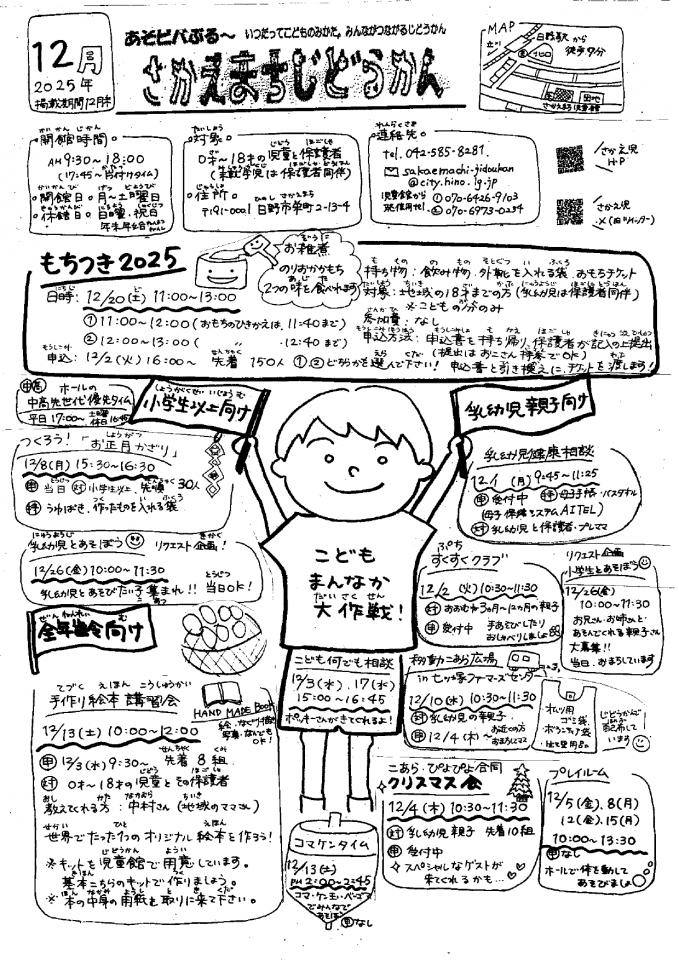 12月
2025年
掲載期間12月末
あそビバぶる〜 いつだってこどものみかた。みんながつながるじどうかん
さかえまちじどうかん
MAP
日野駅から
徒歩9分
さかえまち児童館
団地
開館時間
AM9:30〜18:00
(17:45〜片付けタイム)
開館日 月〜土曜日
休館日 日曜・祝日
年末年始
対象
0才〜18才の児童と保護者
(未就学児は保護者同伴)
住所
〒191-0001 日野市栄町2-13-4
連絡先
tel.042-585-8281
sakaemachi-jidoukan
@city.hino.lg.jp
児童館から
① 070-6426-9103
② 070-6973-0254
さかえ児
HP
さかえ児
X(旧ツイッター)
もちつき2025
お雑煮
のりおかかもち
2つの味を食べれます
日時: 12/20(土) 11:00〜13:00
①11:00〜12:00 (おもちのひきかえは、11:40まで)
②12:00〜13:00 ( 〃 12:40まで)
申込: 12/2(火)16:00〜 先着 150人 ①②どちらかを選んで下さい!
持ち物: 飲み物・外靴を入れる袋 おもちチケット
対象: 地域の18才までの方 (乳幼児は保護者同伴)
※こどもの分のみ
参加費: なし
申込方法: 申込書を持ち帰り、保護者が記入の上提出
(提出はお子さん持参でOK)
申込書と引き換えに、チケットを渡します!
中高 ホールの
中高先世代優先タイム
平日17:00〜 土曜 休日 16:45
小学生以上向け
乳幼児親子向け
つくろう!「お正月かざり」
12/8(月) 15:30〜16:30
申 当日 対 小学生以上 先着30人
持 うわばき、作ったものを入れる袋
乳幼児とあそぼう リクエスト企画!
12/26(金)10:00〜11:30
乳幼児とあそびたい子集まれ!! 当日OK!
全年齢向け
手作り絵本 講習会
12/13(土) 10:00〜12:00
HAND MADE Book
絵・なぐり描き
写真・なんでも
OK!
申 12/3(水)9:30〜 先着 8組
対 0才〜18才の児童とその保護者
教えてくれる方: 中村さん(地域のママさん)
世界でたった1つのオリジナル絵本を作ろう!
※キットを児童館で用意しています。
基本こちらのキットで作りましょう。
※本の中身の用紙を取りに来て下さい。
こども
まんなか
大作戦!
こども何でも相談
12/3(水)、17(水)
15:00〜16:45
ポッキーさんがきてくれるよ!
コマケンタイム
12/13(土)
PM2:00〜2:45
コマ・ケン玉・ベーゴマ
でみんなで
あそぼう
申なし
乳幼児健康相談
12/1(月)9:45〜11:25
申 受付中 持 母子手帳・バスタオル
対 乳幼児と保護者・プレママ
ぷち
すくすくクラブ
12/2(火)10:30〜11:30
対 おおむね3ヵ月〜12ヵ月の親子
申 受付中 手あそびしたり
おしゃべりしましょ
リクエスト企画
小学生とあそぼう
12/26(金)
10:00〜11:30
お兄さん・お姉さんと
あそんでくれる親子さん
大募集!!
当日、おまちしています
移動こあら広場
in七ツ塚ファーマーズセンター
12/10(水)10:30〜11:30
対 乳幼児の親子
申 12/4(木)〜
オムツ用
ゴミ袋
ボランティア袋
じどうかんで
配布して
います
こあら・ぴよぴよ合同
クリスマス会
12/4(木)10:30〜11:30
対 乳幼児親子 先着10組
申 受付中
スペシャルなゲストが
来てくれるかも…
プレイルーム
12/5(金)、8(月)
12(金)、15(月)
10:00〜13:30
申なし
ホールで体を動かして
あそびましょ